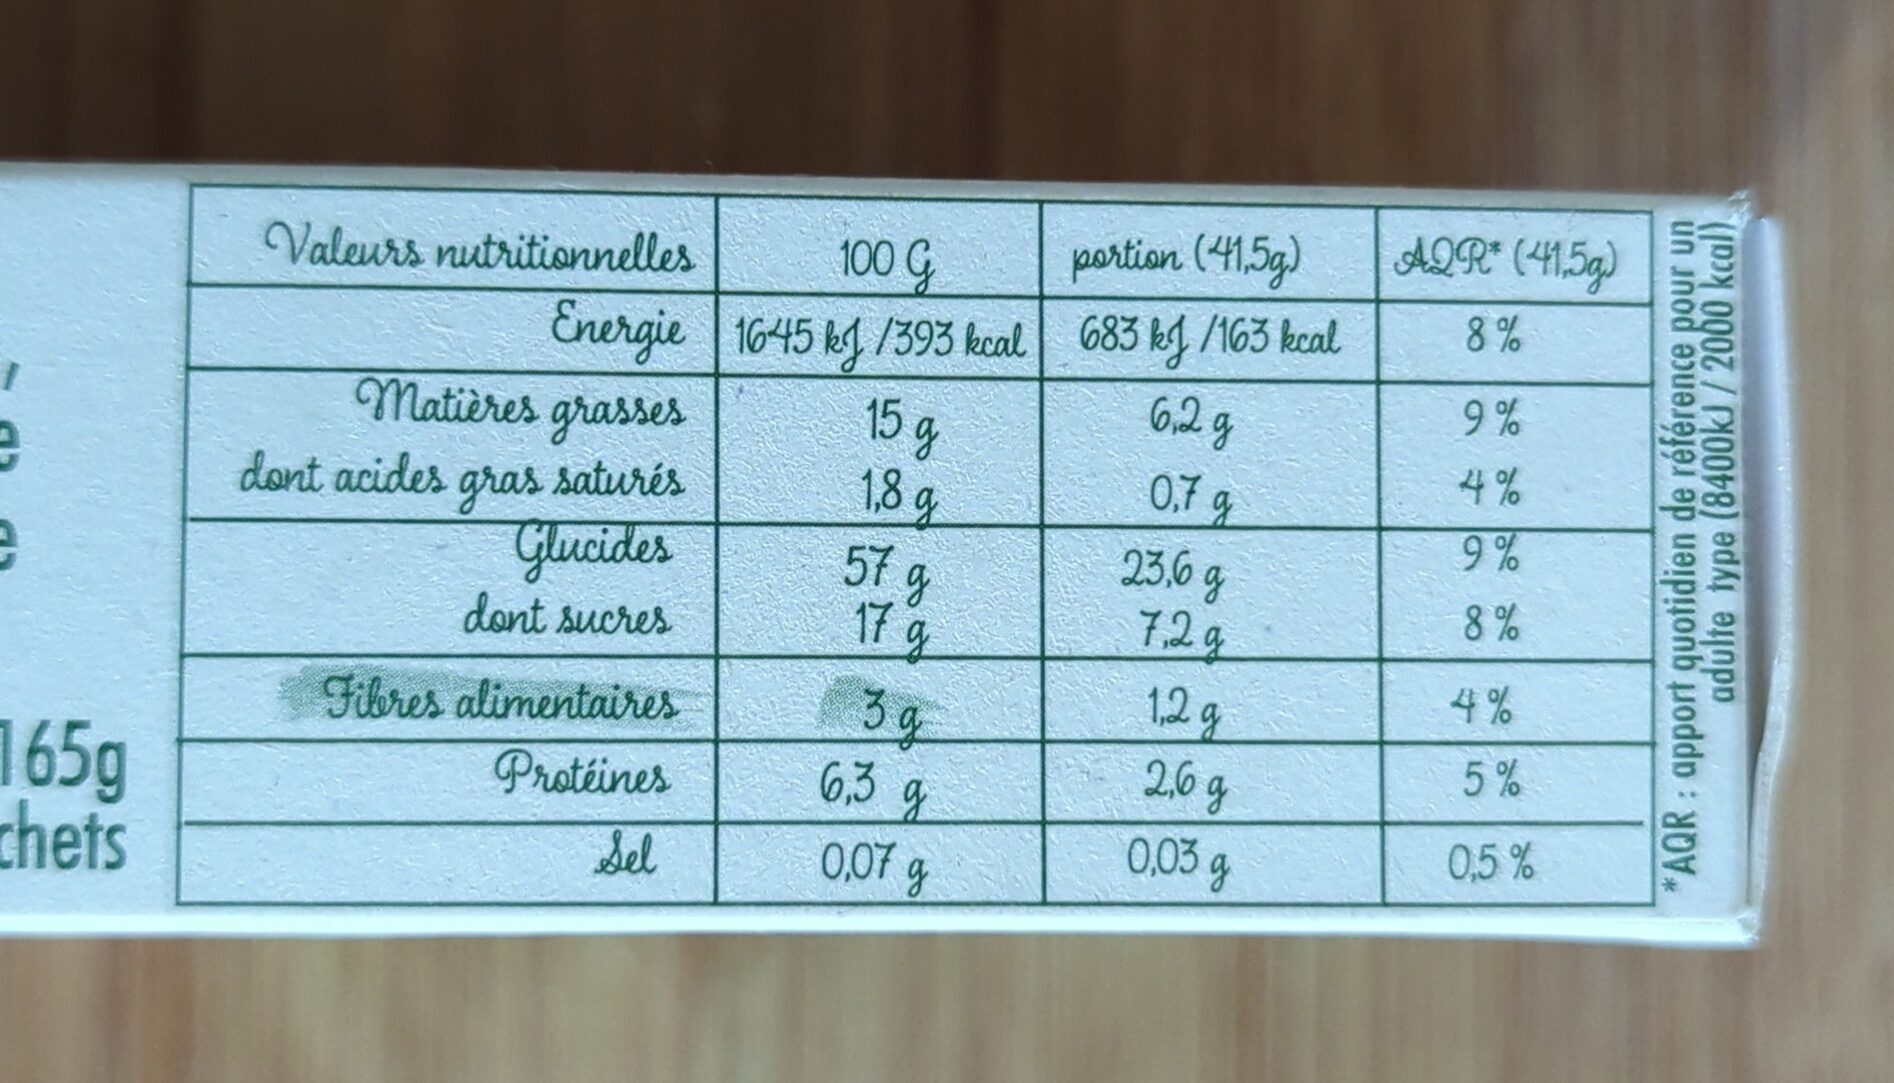 Valeurs nutritionnelles 100 G portion (41,5g) AQR* (41,5g)
Energie 1645 kJ /393 kcal 683 kJ /163 kcal 8 %
Matières grasses 15 g 6,2 g 9 %
dont acides gras saturés 1,8 g 0,7 g 4 %
Glucides 57 g 23,6 g 9 %
dont sucres 17 g 7,2 g 8 %
Fibres alimentaires 3 g 1,2 g 4 %
Protéines 6,3 g 2,6 g 5 %
Sel 0,07 g 0,03 g 0,5 %
*AQR : apport quotidien de référence pour un
adulte type (8400kJ / 2000 kcal)
165g